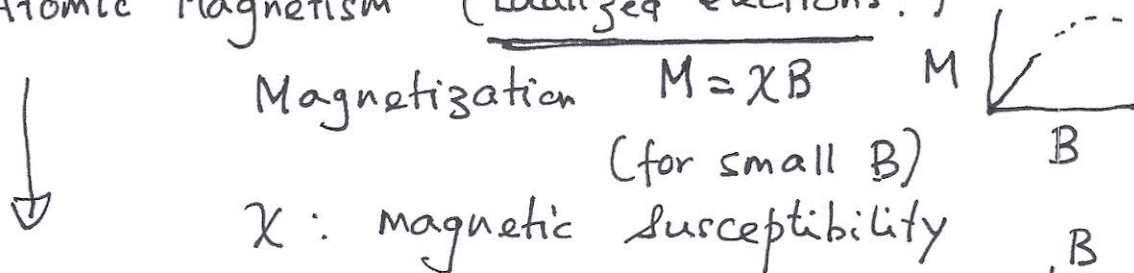 Atomic Magnetism (Localized electrons.)
Magnetization M = χB M
(for small B) B
χ : magnetic susceptibility
B